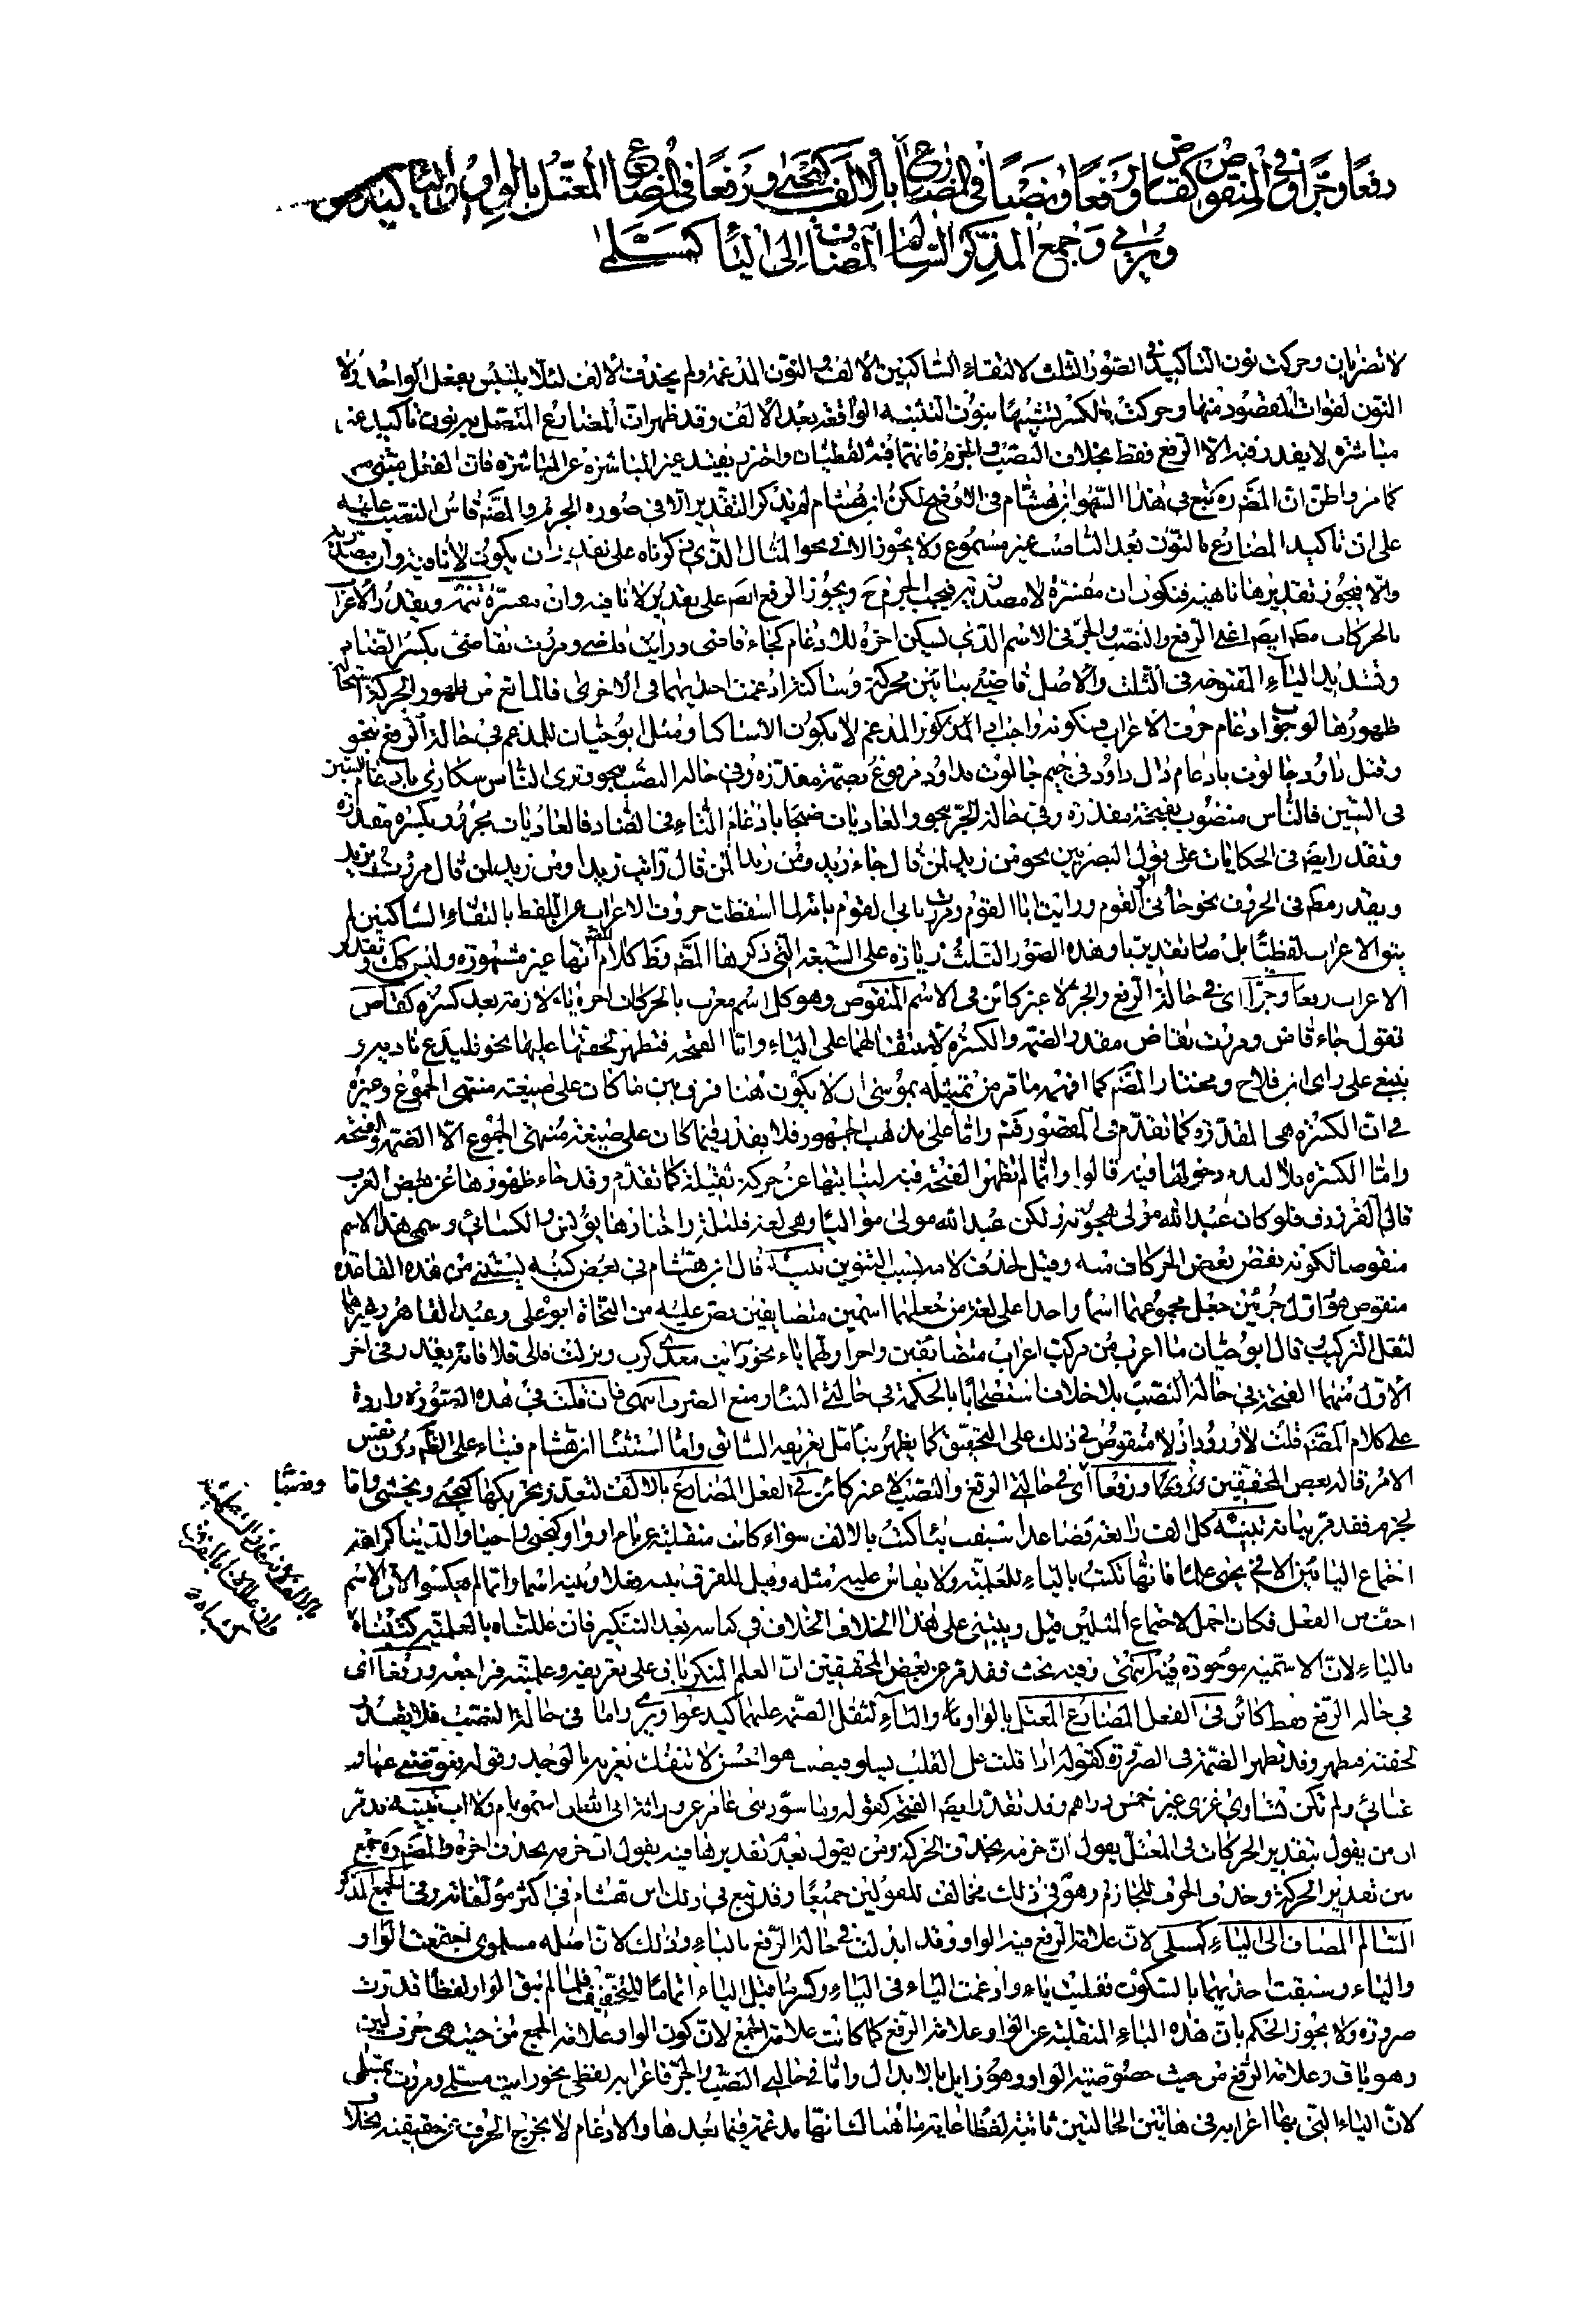 رفعًا وجرًّا وفي المنقوص كقاض ورفعًا ونصبًا في المضارع بالالف كيحيى ورفعًا في المضارع المعتل بالواو والياء كيدعو
ويرمي وجمع المذكر السالم المضاف الى الياء كمسلمي
لا تضربان وحركت نون التأكيد في الصور الثلث لالتقاء الساكنين الالف والنون المدغمة ولم يحذف الالف لئلا يلتبس بفعل الواحد ولا
النون لفوات المقصود منها وحركت بالكسر لشبهها بنون التثنية الواقعة بعد الالف وقد ظهر ان المضارع المتصل به نون تأكيد غير
مباشرة لا يقدر فيه الا الرفع فقط بخلاف النصب والجزم فانهما فيه لفظيان واحترز بقيد غير المباشرة عن المباشرة فان الفعل مبني معه
كما مر واظن ان المص ره تبع في هذا السهو ابن هشام في الاوضح لكن ابن هشام لم يذكر التقدير الا في صورة الجزم والمص قاس النصب عليه
على ان تأكيد المضارع بالنون بعد الناصب غير مسموع ولا يجوز الا في نحو المثال الذي ذكرناه على تقدير ان يكون لا نافية وان مصدرية
والا فيجوز تقديرها ناهية فتكون ان مفسرة لا مصدرية فيجب الجزم ح ويجوز الرفع ايض على تقدير لا نافية وان مفسرة تتمة ويقدر الاعراب
بالحركات مطم ايض اعني الرفع والنصب والجر في الاسم الذي سكن اخره للادغام كجاء قاضي ورايت قاضي ومررت بقاضي بكسر الضاد
وتشديد الياء المفتوحة في الثلث والاصل قاضيي بيائين محركة وساكنة ادغمت احديهما في الاخرى فالمانع من ظهور الحركة استحالة
ظهورها لوجوب ادغام حرف الاعراب وسكونه واجب في المذكور المدغم لا يكون الا ساكنا ومثل ابو حيان للمدغم في حالة الرفع بنحو
وقتل داود جالوت بادغام دال داود في جيم جالوت فداود مرفوع بضمة مقدرة وفي حالة النصب بنحو وترى الناس سكارى بادغام السين
في السين فالناس منصوب بفتحة مقدرة وفي حالة الجر بنحو والعاديات ضبحا بادغام التاء في الضاد فالعاديات مجرور بكسرة مقدرة
وتقدر ايض في الحكايات على قول البصريين نحو من زيد لمن قال جاء زيد ومن زيدا لمن قال رايت زيدا ومن زيد لمن قال مررت بزيد
ويقدر مطم في الحروف نحو جاءني ابو القوم ورايت ابا القوم ومررت بابي القوم بانه لما اسقطت حروف الاعراب عن اللفظ بالتقاء الساكنين لم
يبق الاعراب لفظيًا بل صار تقديريا وهذه الصور الثلث زيادة على السبعة التي ذكرها المص وظ كلام المص انها غير مشهورة وليس كك وتقدير
الاعراب رفعا وجرّا اي في حالة الرفع والجر لا غير كائن في الاسم المنقوص وهو كل اسم معرب بالحركات اخره ياء لازمة بعد كسرة كقاض
تقول جاء قاض ومررت بقاض مقدر الضمة والكسرة لاستثقالهما على الياء واما الفتحة فتظهر لخفتها عليها نحو فليدع ناديه و
ينبغي على راي ابن فلاح ومختار المص كما افهمه ما مر من تمثيله بموسى ان لا يكون هنا فرق بين ما كان على صيغة منتهى الجموع وغيره
في ان الكسرة هي المقدرة كما تقدم في المقصور فتم واما على مذهب الجمهور فلا يقدر فيما كان على صيغة منتهى الجموع الا الضمة والفتحة
واما الكسرة فلا لعدم دخولها فيه قالوا وانما لم تظهر الفتحة فيه لنيابتها عن حركة ثقيلة كما تقدم وقد جاء ظهورها عن بعض العرب
قال الفرزدق فلو كان عبد الله مولى هجوته ولكن عبد الله مولى مواليا وهي لغة قليلة اختارها يونس والكسائي وسمي هذا الاسم
منقوصا لكونه نقص بعض الحركات منه وقيل لحذف لامه بسبب التنوين تنبيه قال ابن هشام في بعض كتبه يستثنى من هذه القاعدة
منقوص هو اول جزئين جعل مجموعهما اسما واحدا على لغة من جعلهما اسمين متضايفين نص عليه من النحاة ابو علي وعبد القاهر وغيرهما
لثقل التركيب قال ابو حيان ما اعرب من مركب اعراب متضايفين واخر اولهما ياء نحو رايت معدي كرب ونزلت قالي قلا فانه يقدر في اخر
الاول منهما الفتحة في حالة النصب بلا خلاف استصحابا بالحكمه في حالتي البناء ومنع الصرف انتهى فان قلت في هذه الصورة واردة
على كلام المص قلت لا ورود اذ لا منقوص في ذلك على التحقيق كما يظهر بتأمل تعريفه السابق واما استثناء ابن هشام فبناء على الظ دون نفس
الامر قاله بعض المحققين ويقدر رفعا ونصبا اي في حالتي الرفع والنصب لا غير كائن في الفعل المضارع بالالف لتعذر تحريكها كيحيى ويخشى واما
جزمه فقد مر بيانه تنبيه كل الف رابعة فصاعدا سبقت بياء كتبت بالالف سواء كانت منقلبة عن ياء او واو كيحيى واحيا والدنيا كراهة
اجتماع اليائين الا في يحيى علما فانها تكتب بالياء للعلمية ولا يقاس عليه مثله وقيل للفرق بينه فعلا وبينه اسما وانما لم يعكس لان الاسم
اخف من الفعل فكان احمل لاجتماع المثلين قيل وينبني على هذا الخلاف الخلاف في كتابته بعد التنكير فان عللناه بالعلمية كتبناه
بالياء لان الاسمية موجودة فيه انتهى وفيه بحث فقد مر عن بعض المحققين ان العلم المنكر باق على تعريفه وعلميته فراجعه ورفعا اي
في حالة الرفع فقط كائن في الفعل المضارع المعتل بالواو والياء لثقل الضمة عليهما كيدعو ويرمي واما في حالة النصب فلا يقدر
لخفته فيظهر وقد تظهر الضمة في الضرورة كقوله اذا قلت عل القلب يسلو قيضت هواجس لا تنفك تغريه بالوجد وقوله فعوضني عنها
غنائي ولم تكن تساوي عنزي غير خمس دراهم وقد تقدر ايض الفتحة كقوله وما سودتني عامر عن وراثة ابى الله ان اسمو بام ولا اب تنبيه قد مر
ان من يقول بتقدير الحركات في المعتل يقول ان جزمه بحذف الحركة ومن يقول بعدم تقديرها فيه يقول ان جزمه بحذف اخره والمص ره جمع
بين تقدير الحركة وحذف الحرف للجازم وهو في ذلك مخالف للقولين جميعًا وقد تبع في ذلك ابن هشام في اكثر مؤلفاته وفي الجمع المذكر
السالم المضاف الى الياء كمسلمي لان علامة الرفع فيه الواو وقد ابدلت في حالة الرفع بالياء وذلك لان اصله مسلموي اجتمعت الواو
والياء وسبقت احديهما بالسكون فقلبت ياء وادغمت الياء في الياء وكسر ما قبل الياء اتماما للتخفيف فلما لم تبق الواو لفظًا قدرت
ضرورة ولا يجوز الحكم بان هذه الياء المنقلبة عن الواو علامة الرفع كما كانت علامة الجمع لان كون الواو علامة الجمع من حيث هي حرف لين
وهو باق وعلامة الرفع من حيث خصوصية الواو وهو زايل بالابدال واما في حالتي النصب والجر فاعرابه لفظي نحو رايت مسلمي ومررت بمسلمي
لان الياء التي بها اعرابه في هاتين الحالتين ثابتة لفظا غاية ما هناك انها مدغمة فيما بعدها والادغام لا يخرج الحرف عن حقيقته بخلاف
ونصبا